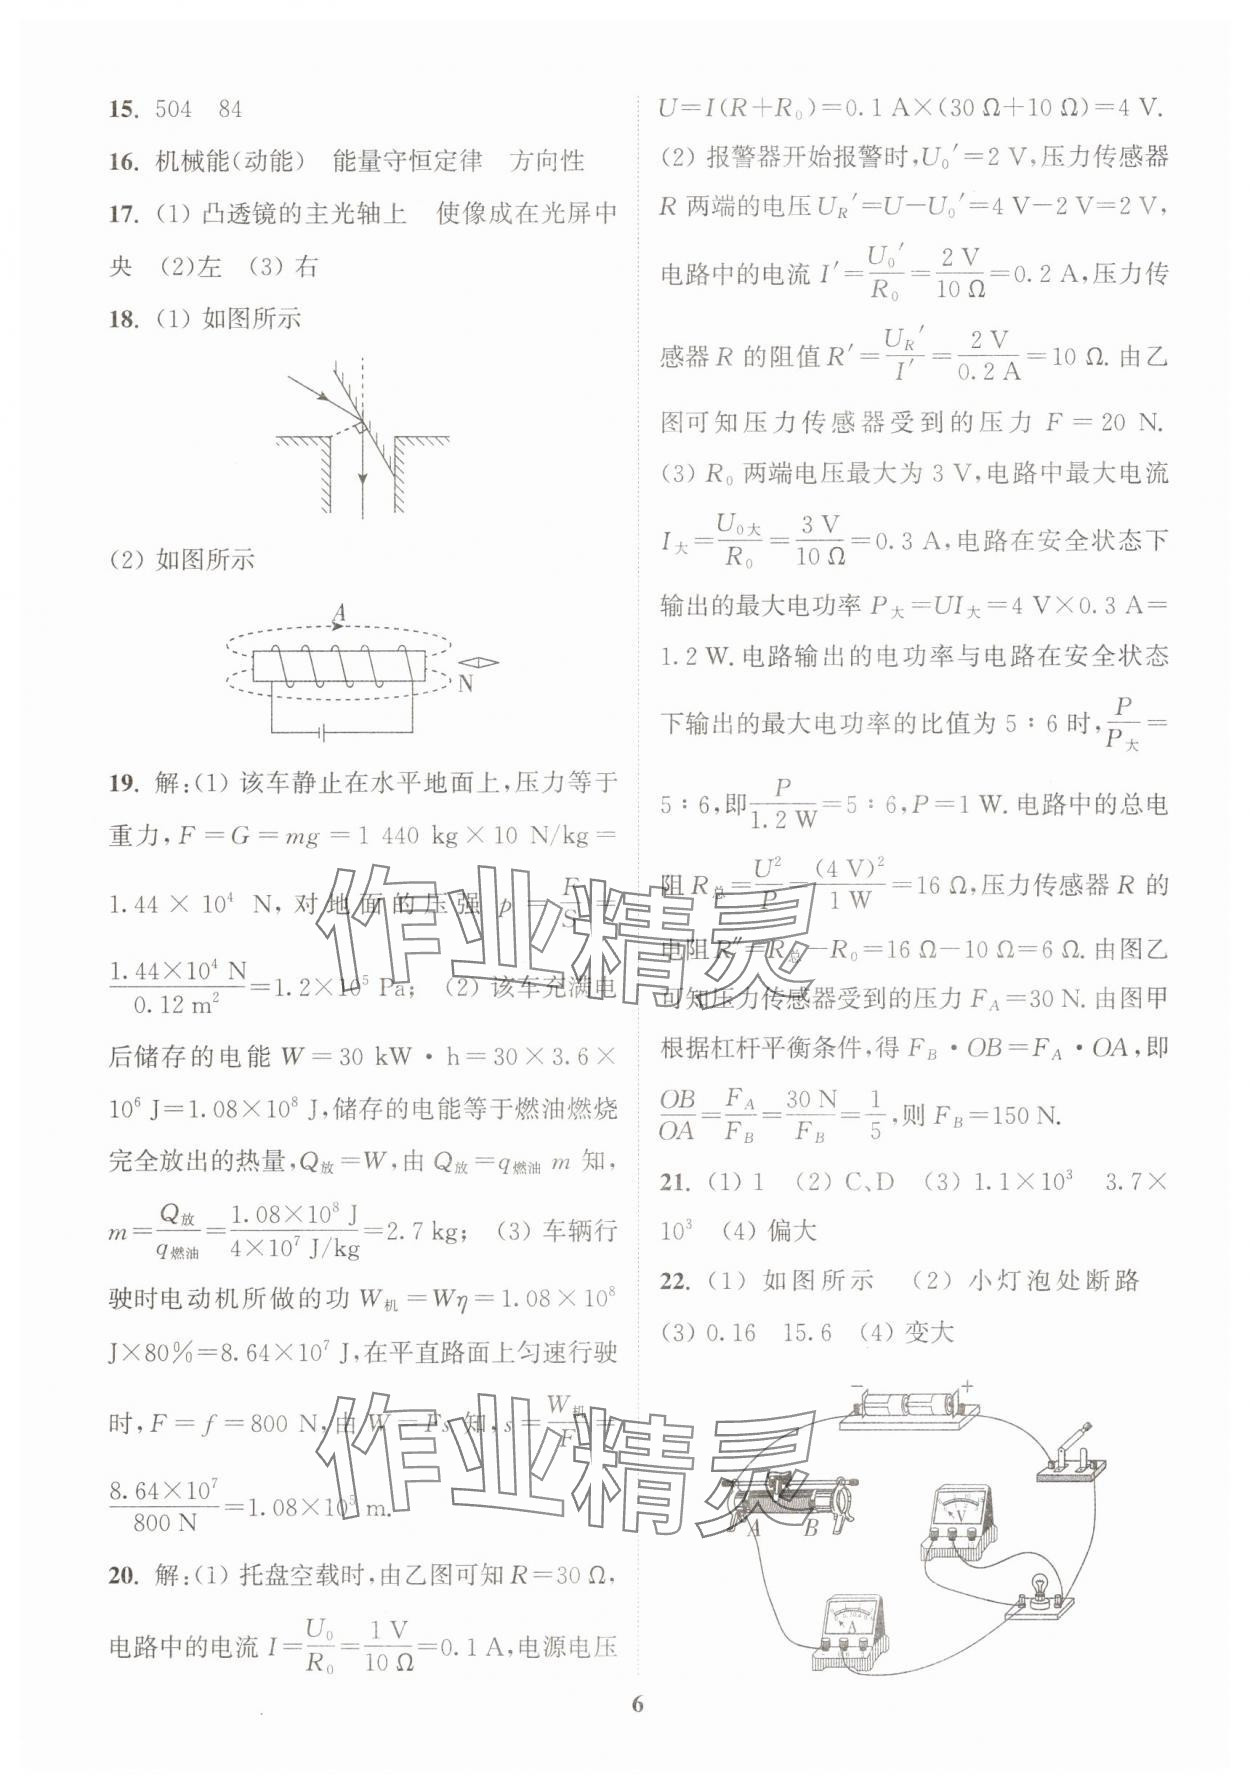 15. 504　84
16. 机械能(动能)　能量守恒定律　方向性
17. (1) 凸透镜的主光轴上　使像成在光屏中
央　(2)左　(3) 右
18. (1) 如图所示
(2) 如图所示
A
N
19. 解:(1) 该车静止在水平地面上,压力等于
重力, F=G=mg=1 440 kg×10 N/kg=
1.44×10⁴ N, 对地面的压强 p=F/S=
1.44×10⁴ N/0.12 m²=1.2×10⁵ Pa; (2) 该车充满电
后储存的电能 W=30 kW·h=30×3.6×
10⁶ J=1.08×10⁸ J,储存的电能等于燃油燃烧
完全放出的热量,Q放=W,由 Q放=q燃油 m 知,
m=Q放/q燃油=1.08×10⁸ J/4×10⁷ J/kg=2.7 kg; (3) 车辆行
驶时电动机所做的功 W机=Wη=1.08×10⁸
J×80%=8.64×10⁷ J,在平直路面上匀速行驶
时, F=f=800 N,由 W=Fs 知, s=W机/F=
8.64×10⁷/800 N=1.08×10⁵ m.
20. 解:(1) 托盘空载时,由乙图可知 R=30 Ω,
电路中的电流 I=U₀/R₀=1 V/10 Ω=0.1 A,电源电压
U=I(R+R₀)=0.1 A×(30 Ω+10 Ω)=4 V.
(2) 报警器开始报警时,U₀′=2 V,压力传感器
R 两端的电压 U_R′=U−U₀′=4 V−2 V=2 V,
电路中的电流 I′=U₀′/R₀=2 V/10 Ω=0.2 A,压力传
感器 R 的阻值 R′=U_R′/I′=2 V/0.2 A=10 Ω. 由乙
图可知压力传感器受到的压力 F=20 N.
(3) R₀ 两端电压最大为 3 V,电路中最大电流
I大=U₀大/R₀=3 V/10 Ω=0.3 A,电路在安全状态下
输出的最大电功率 P大=UI大=4 V×0.3 A=
1.2 W. 电路输出的电功率与电路在安全状态
下输出的最大电功率的比值为 5∶6 时,P/P大=
5∶6,即P/1.2 W=5∶6,P=1 W. 电路中的总电
阻 R总=U²/P=(4 V)²/1 W=16 Ω,压力传感器 R 的
电阻 R″=R总−R₀=16 Ω−10 Ω=6 Ω. 由图乙
可知压力传感器受到的压力 F_A=30 N. 由图甲
根据杠杆平衡条件,得 F_B·OB=F_A·OA,即
OB/OA=F_A/F_B=30 N/F_B=1/5,则 F_B=150 N.
21. (1) 1　(2) C、D　(3) 1.1×10³　3.7×
10³　(4) 偏大
22. (1) 如图所示　(2) 小灯泡处断路
(3) 0.16　15.6　(4) 变大
− +
A B
V
A
作业精灵
作业精灵
6